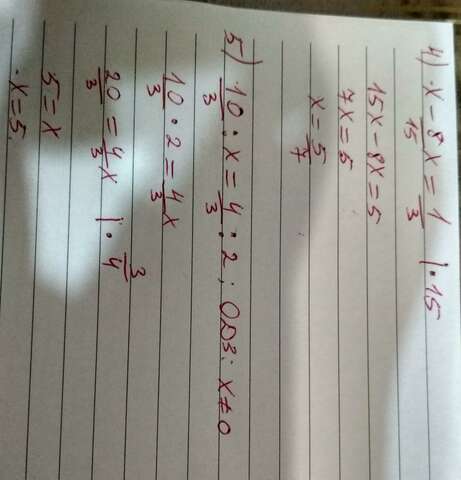 4) x - 8/15 x = 1/3 | · 15
15x - 8x = 5
7x = 5
x = 5/7
5) 10/3 : x = 4/3 : 2 ; ОДЗ: x ≠ 0
10/3 · 2 = 4/3 x
20/3 = 4/3 x | · 3/4
5 = x
x = 5.